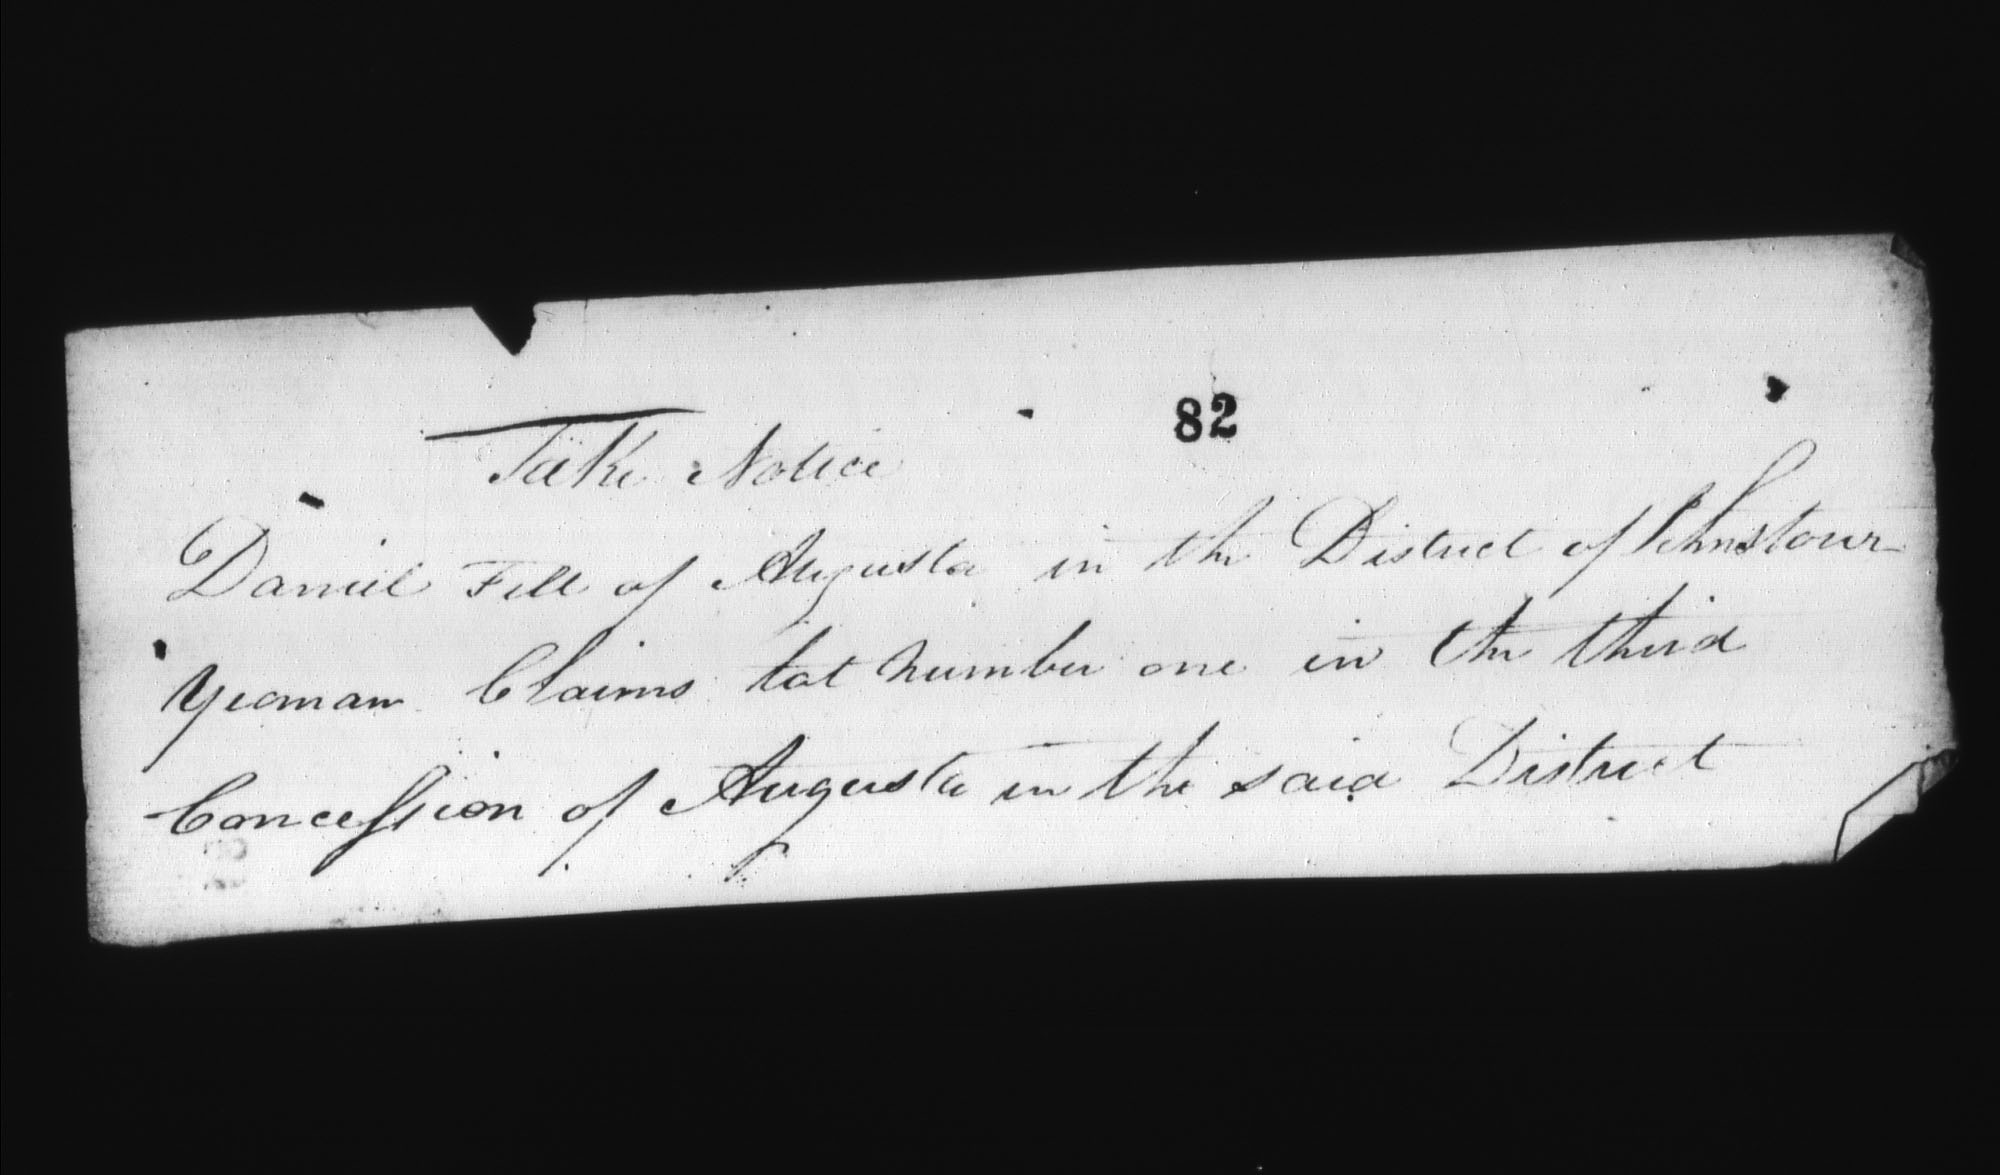 82
Take Notice
Daniel Fell of Augusta in the District of Johnstown
Yeoman Claims lot number one in the third
Concession of Augusta in the said District